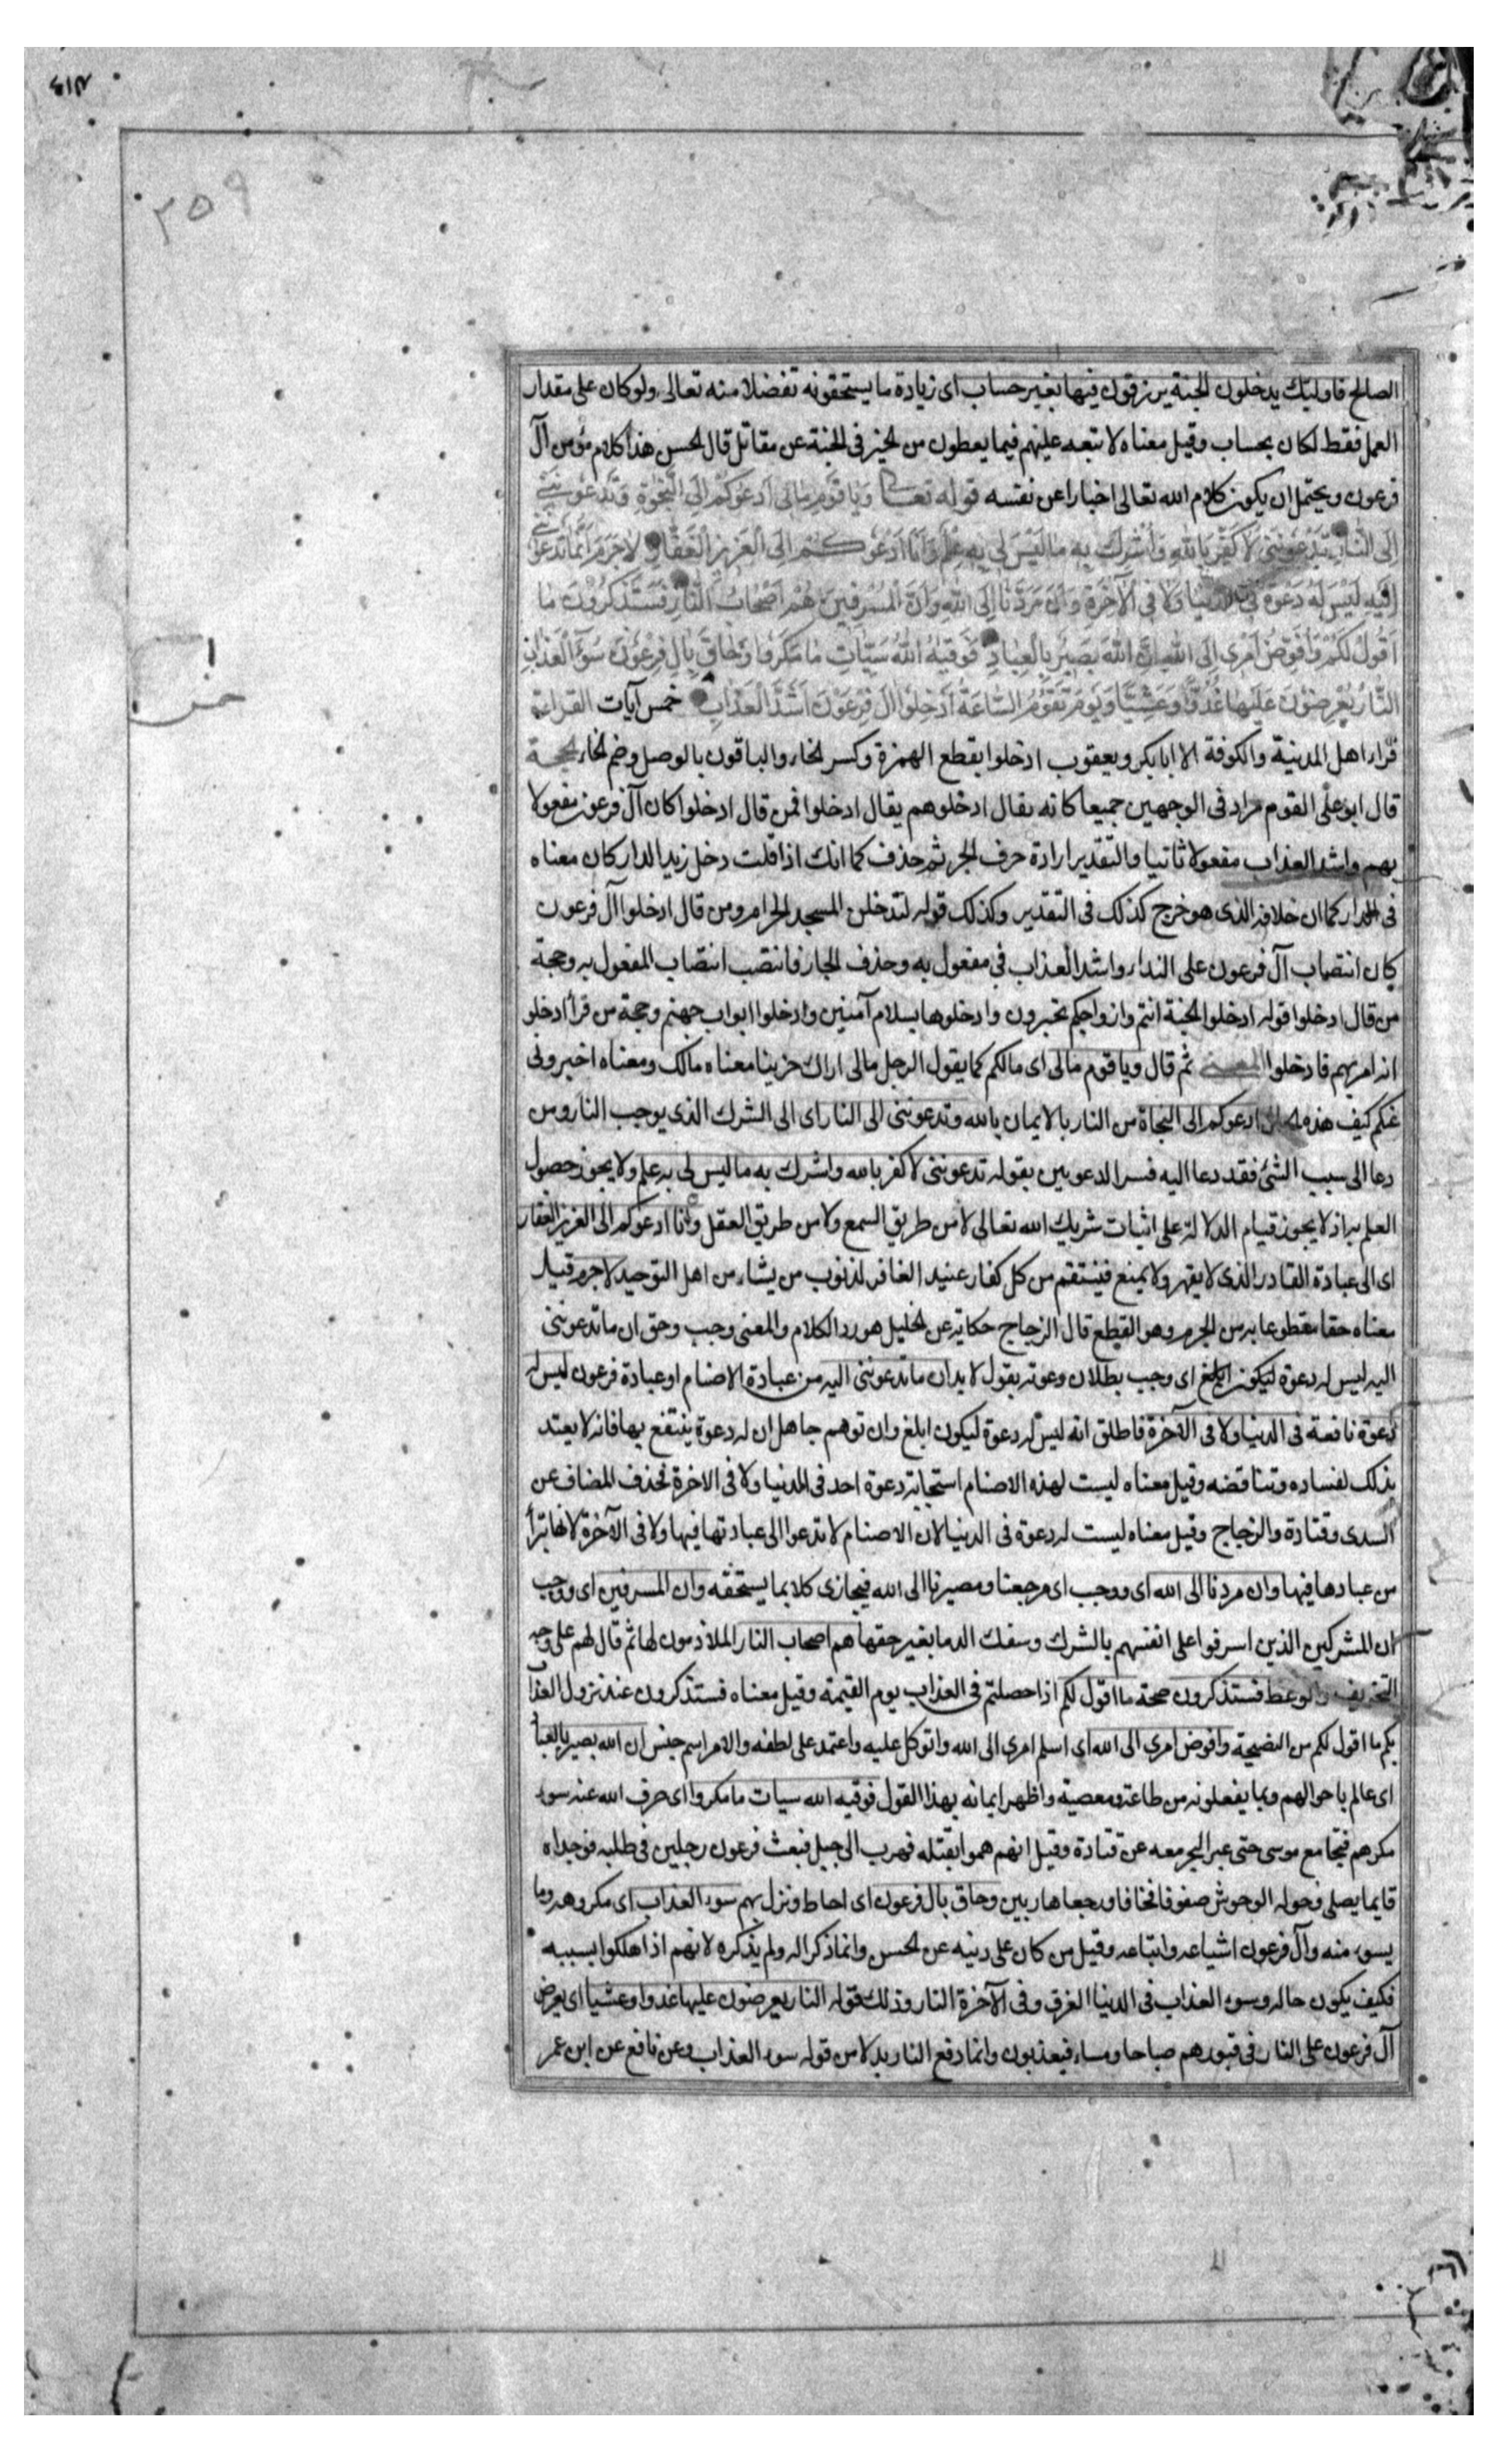 ٤١٣
٣٥٩
الصالح فاولئك يدخلون الجنة يرزقون فيها بغير حساب اى زيادة ما يستحقونه تفضلا منه تعالى ولو كان على مقدار
العمل فقط لكان بحساب وقيل معناه لا تبعه عليهم فيما يعطون من الخير فى الجنة عن مقاتل قال الحسن هذا كلام مؤمن آل
فرعون ويحتمل ان يكون كلام الله تعالى اخبارا عن نفسه قوله تعالى وَيَا قَوْمِ مَالِى اَدْعُوكُمْ اِلَى النَّجٰوةِ وَتَدْعُونَنِى
اِلَى النَّارِ تَدْعُونَنِى لِاَكْفُرَ بِاللهِ وَاُشْرِكَ بِهِ مَا لَيْسَ لِى بِهِ عِلْمٌ وَاَنَا اَدْعُوكُمْ اِلَى الْعَزِيزِ الْغَفَّارِ لَاجَرَمَ اَنَّمَا تَدْعُونَنِى
اِلَيْهِ لَيْسَ لَهُ دَعْوَةٌ فِى الدُّنْيَا وَلَا فِى الْآخِرَةِ وَاَنَّ مَرَدَّنَا اِلَى اللهِ وَاَنَّ الْمُسْرِفِينَ هُمْ اَصْحَابُ النَّارِ فَسَتَذْكُرُونَ مَا
اَقُولُ لَكُمْ وَاُفَوِّضُ اَمْرِى اِلَى اللهِ اِنَّ اللهَ بَصِيرٌ بِالْعِبَادِ فَوَقٰيهُ اللهُ سَيِّئَاتِ مَا مَكَرُوا وَحَاقَ بِاٰلِ فِرْعَوْنَ سُوٓءُ الْعَذَابِ
النَّارُ يُعْرَضُونَ عَلَيْهَا غُدُوًّا وَعَشِيًّا وَيَوْمَ تَقُومُ السَّاعَةُ اَدْخِلُوا اٰلَ فِرْعَوْنَ اَشَدَّ الْعَذَابِ خمس آيات القراءة
قراء اهل المدينة والكوفة الا ابا بكر ويعقوب ادخلوا بقطع الهمزة وكسر الخاء والباقون بالوصل وضم الخاء الحجة
قال ابو على القوم مراد فى الوجهين جميعا كانه يقال ادخلوهم يقال ادخلوا فمن قال ادخلوا كان آل فرعون مفعولا
بهم واشد العذاب مفعولا ثانيا والتقدير ارادة حرف الجر ثم حذف كما انك اذا قلت دخل زيد الدار كان معناه
فى الدار كما ان خلافه الذى هو خرج كذلك فى التقدير وكذلك قوله لتدخلن المسجد الحرام ومن قال ادخلوا آل فرعون
كان انتصاب آل فرعون على النداء واشد العذاب فى مفعول به وحذف الجار فانتصب انتصاب المفعول به وحجة
من قال ادخلوا قوله ادخلوا الجنة انتم وازواجكم تحبرون وادخلوها بسلام آمنين وادخلوا ابواب جهنم وحجة من قرأ ادخلو
انه امر بهم فادخلوا المعنى ثم قال ويا قوم مالى اى مالكم كما يقول الرجل مالى اراك حزينا معناه مالك ومعناه اخبرونى
عنكم كيف هذه الحال ادعوكم الى النجاة من النار بالايمان بالله وتدعوننى الى النار اى الى الشرك الذى يوجب النار ومن
دعا الى سبب الشئ فقد دعا اليه فسر الدعوبين بقوله تدعوننى لاكفر بالله واشرك به ما ليس لى به علم ولا يجوز حصول
العلم به اذ لا يجوز قيام الدلالة على اثبات شريك الله تعالى لا من طريق السمع ولا من طريق العقل وانا ادعوكم الى العزيز الغفار
اى الى عبادة القادر الذى لا يقهر ولا يمنع فينتقم من كل كفار عنيد الغافر لذنوب من يشاء من اهل التوحيد لاجرم قيل
معناه حقا مقطوعا به من الجرم وهو القطع قال الزجاج حكاية عن الخليل هو رد الكلام والمعنى وجب وحق ان ما تدعوننى
اليه ليس له دعوة ليكون ابلغ اى وجب بطلان دعوته يقول لا بد ان ما تدعوننى اليه من عبادة الاصنام او عبادة فرعون ليس له
دعوة نافعة فى الدنيا ولا فى الآخرة فاطلق انه ليس له دعوة ليكون ابلغ وان توهم جاهل ان له دعوة ينتفع بها فانه لا يعتد
بذلك لفساده وتناقضه وقيل معناه ليست لهذه الاصنام استجابة دعوة احد فى الدنيا ولا فى الاخرة فحذف المضاف عن
السدى وقتادة والزجاج وقيل معناه ليست له دعوة فى الدنيا لان الاصنام لا تدعوا الى عبادتها فيها ولا فى الآخرة لانها تبرأ
من عبادها فيها وان مردنا الى الله اى ووجب اى مرجعنا ومصيرنا الى الله فيجازى كلا بما يستحقه وان المسرفين اى ووجب
ان المشركين الذين اسرفوا على انفسهم بالشرك وسفك الدما بغير حقها هم اصحاب النار الملازمون لها ثم قال لهم على وجه
التخويف والوعظ فستذكرون صحة ما اقول لكم اذا حصلتم فى العذاب يوم القيمة وقيل معناه فستذكرون عند نزول العذاب
بكم ما اقول لكم من النصيحة وافوض امرى الى الله اى اسلم امرى الى الله واتوكل عليه واعتمد على لطفه والامر اسم جنس ان الله بصير بالعباد
اى عالم باحوالهم وبما يفعلونه من طاعة ومعصية واظهر ايمانه بهذا القول فوقيه الله سيات ما مكروا اى صرف الله عنه سوء
مكرهم فنجا مع موسى حتى عبر البحر معه عن قتادة وقيل انهم هموا بقتله فهرب الى جبل فبعث فرعون رجلين فى طلبه فوجداه
قايما يصلى وحوله الوحوش صفوفا فخافا ورجعا هاربين وحاق بال فرعون اى احاط ونزل بهم سوء العذاب اى مكروهه وما
يسوء منه وآل فرعون اشياعه واتباعه وقيل من كان على دينه عن الحسن وانما ذكر اله ولم يذكره لانهم اذا هلكوا بسببه
فكيف يكون حاله وسوء العذاب فى الدنيا الغرق وفى الآخرة النار وذلك قوله النار يعرضون عليها غدوا وعشيا اى يعرض
آل فرعون على النار فى قبورهم صباحا ومساء فيعذبون وانما رفع النار بدلا من قوله سوء العذاب وعن نافع عن ابن عمر